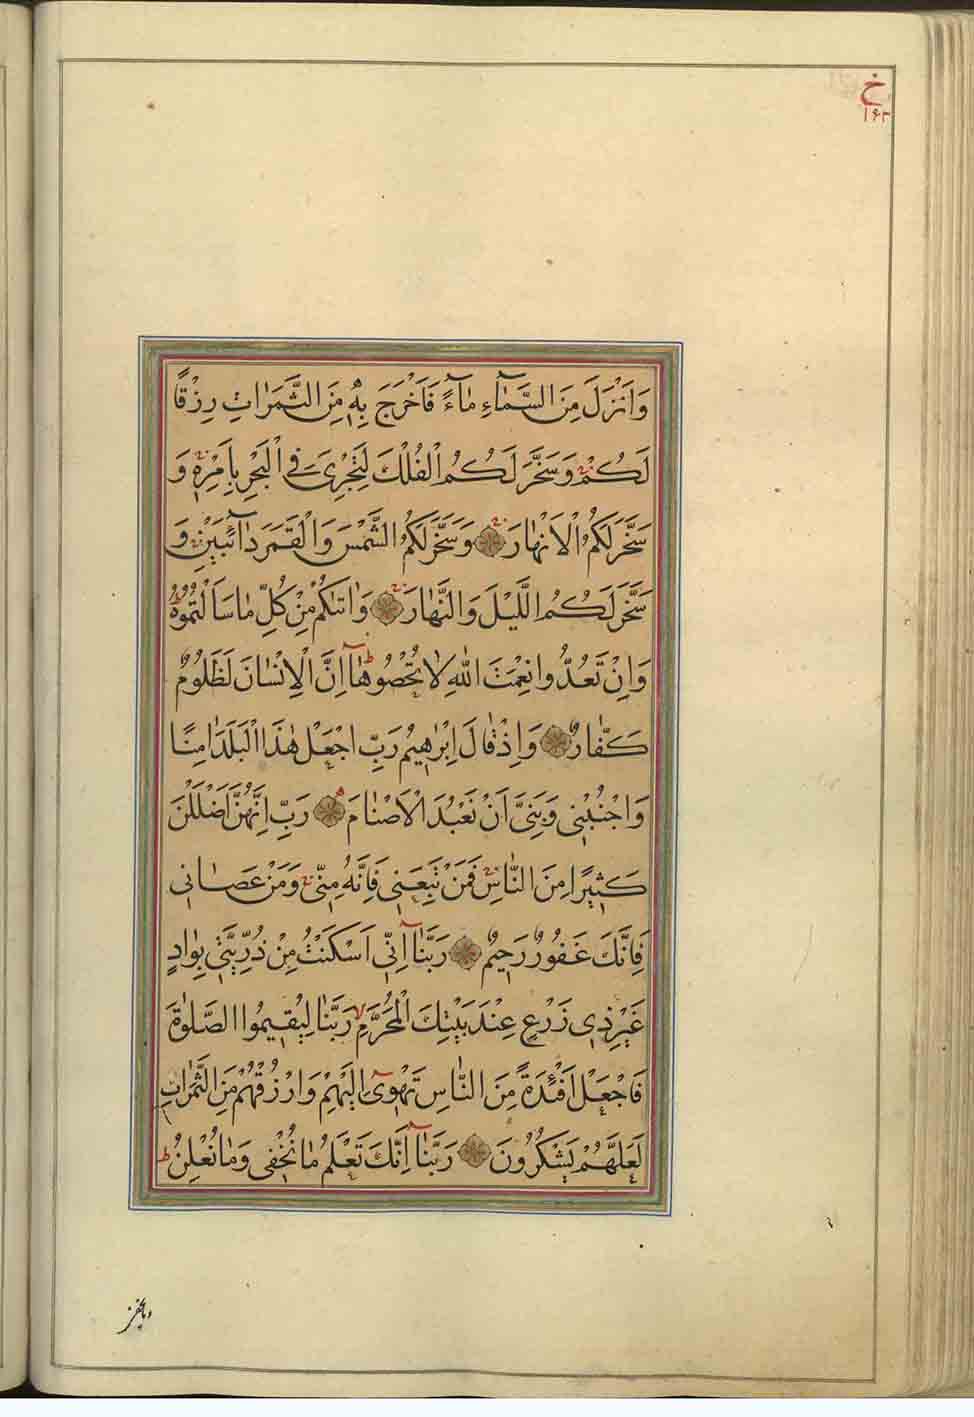 خ
۱۶۳
وَاَنْزَلَ مِنَ السَّمٰٓاءِ مٰٓاءً فَاَخْرَجَ بِهٖ مِنَ الثَّمَرٰاتِ رِزْقًا
لَكُمْ وَسَخَّرَ لَكُمُ الْفُلْكَ لِتَجْرِىَ فِى الْبَحْرِ بِاَمْرِهٖ وَ
سَخَّرَ لَكُمُ الْاَنْهٰارَ وَسَخَّرَ لَكُمُ الشَّمْسَ وَالْقَمَرَ دٰٓائِبَيْنِ وَ
سَخَّرَ لَكُمُ اللَّيْلَ وَالنَّهٰارَ وَاٰتٰىكُمْ مِنْ كُلِّ مٰا سَاَلْتُمُوهُ
وَاِنْ تَعُدُّوا نِعْمَتَ اللّٰهِ لٰا تُحْصُوهٰا اِنَّ الْاِنْسٰانَ لَظَلُومٌ
كَفّٰارٌ وَاِذْ قٰالَ اِبْرٰهِيمُ رَبِّ اجْعَلْ هٰذَا الْبَلَدَ اٰمِنًا
وَاجْنُبْنِى وَبَنِىَّ اَنْ نَعْبُدَ الْاَصْنٰامَ رَبِّ اِنَّهُنَّ اَضْلَلْنَ
كَثِيرًا مِنَ النّٰاسِ فَمَنْ تَبِعَنِى فَاِنَّهُ مِنِّى وَمَنْ عَصٰانِى
فَاِنَّكَ غَفُورٌ رَحِيمٌ رَبَّنٰا اِنِّى اَسْكَنْتُ مِنْ ذُرِّيَّتِى بِوٰادٍ
غَيْرِ ذِى زَرْعٍ عِنْدَ بَيْتِكَ الْمُحَرَّمِ رَبَّنٰا لِيُقِيمُوا الصَّلٰوةَ
فَاجْعَلْ اَفْئِدَةً مِنَ النّٰاسِ تَهْوِىٓ اِلَيْهِمْ وَارْزُقْهُمْ مِنَ الثَّمَرٰاتِ
لَعَلَّهُمْ يَشْكُرُونَ رَبَّنٰا اِنَّكَ تَعْلَمُ مٰا نُخْفِى وَمٰا نُعْلِنُ